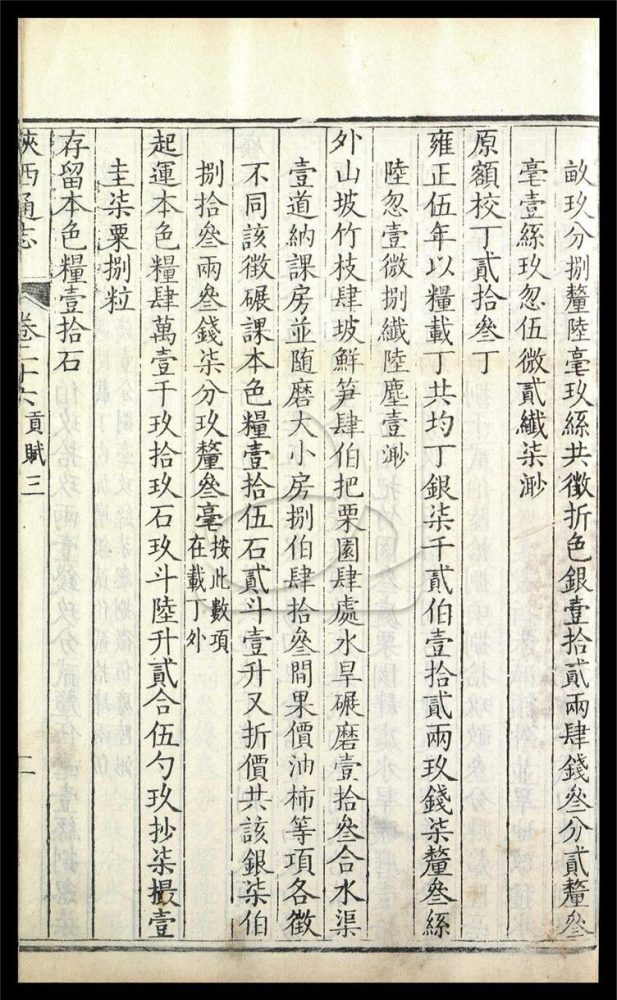 畝玖分捌釐陸毫玖絲共徵折色銀壹拾貳兩肆錢叄分貳釐叄
毫壹絲玖忽伍微貳纖柒渺
原額校丁貳拾叄丁
雍正伍年以糧載丁共均丁銀柒千貳伯壹拾貳兩玖錢柒釐叄絲
陸忽壹微捌纖陸塵壹渺
外山坡竹枝肆坡鮮笋肆伯把栗園肆處水旱碾磨壹拾叄合水渠
壹道納課房並随磨大小房捌伯肆拾叄間果價油柿等項各徵
不同該徵碾課本色糧壹拾伍石貳斗壹升又折價共該銀柒伯
捌拾叄兩叄錢柒分玖釐叄毫按此數項在載丁外
起運本色糧肆萬壹千玖拾玖石玖斗陸升貳合伍勺玖抄柒撮壹
圭柒粟捌粒
存留本色糧壹拾石
陜西通志 卷二十六 貢賦三 二